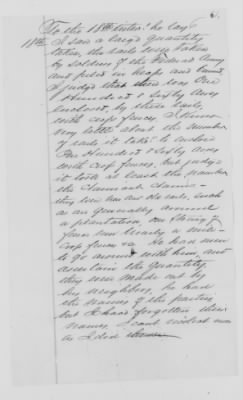 To the 18th Inter. he says
I saw a large quantity
taken, the rails were taken
by soldiers of the Federal Army
and piled in heaps and burned
I judge that there was One
Hundred & Sixty Acres
enclosed, by these rails,
with crop fences, I know
very little about the number
of rails it takes to enclose
One Hundred & Sixty acres
with crop fences, but judge
it took at least the number
the Claimant claims
they were
as are generally around
a plantation on
nearly a mile
crop fence &c. He had men
to go around with him, and
ascertain the Quantity,
they were made out by
his neighbors, he had
the names of the parties
but I have forgotten their
names, I cant
as I did